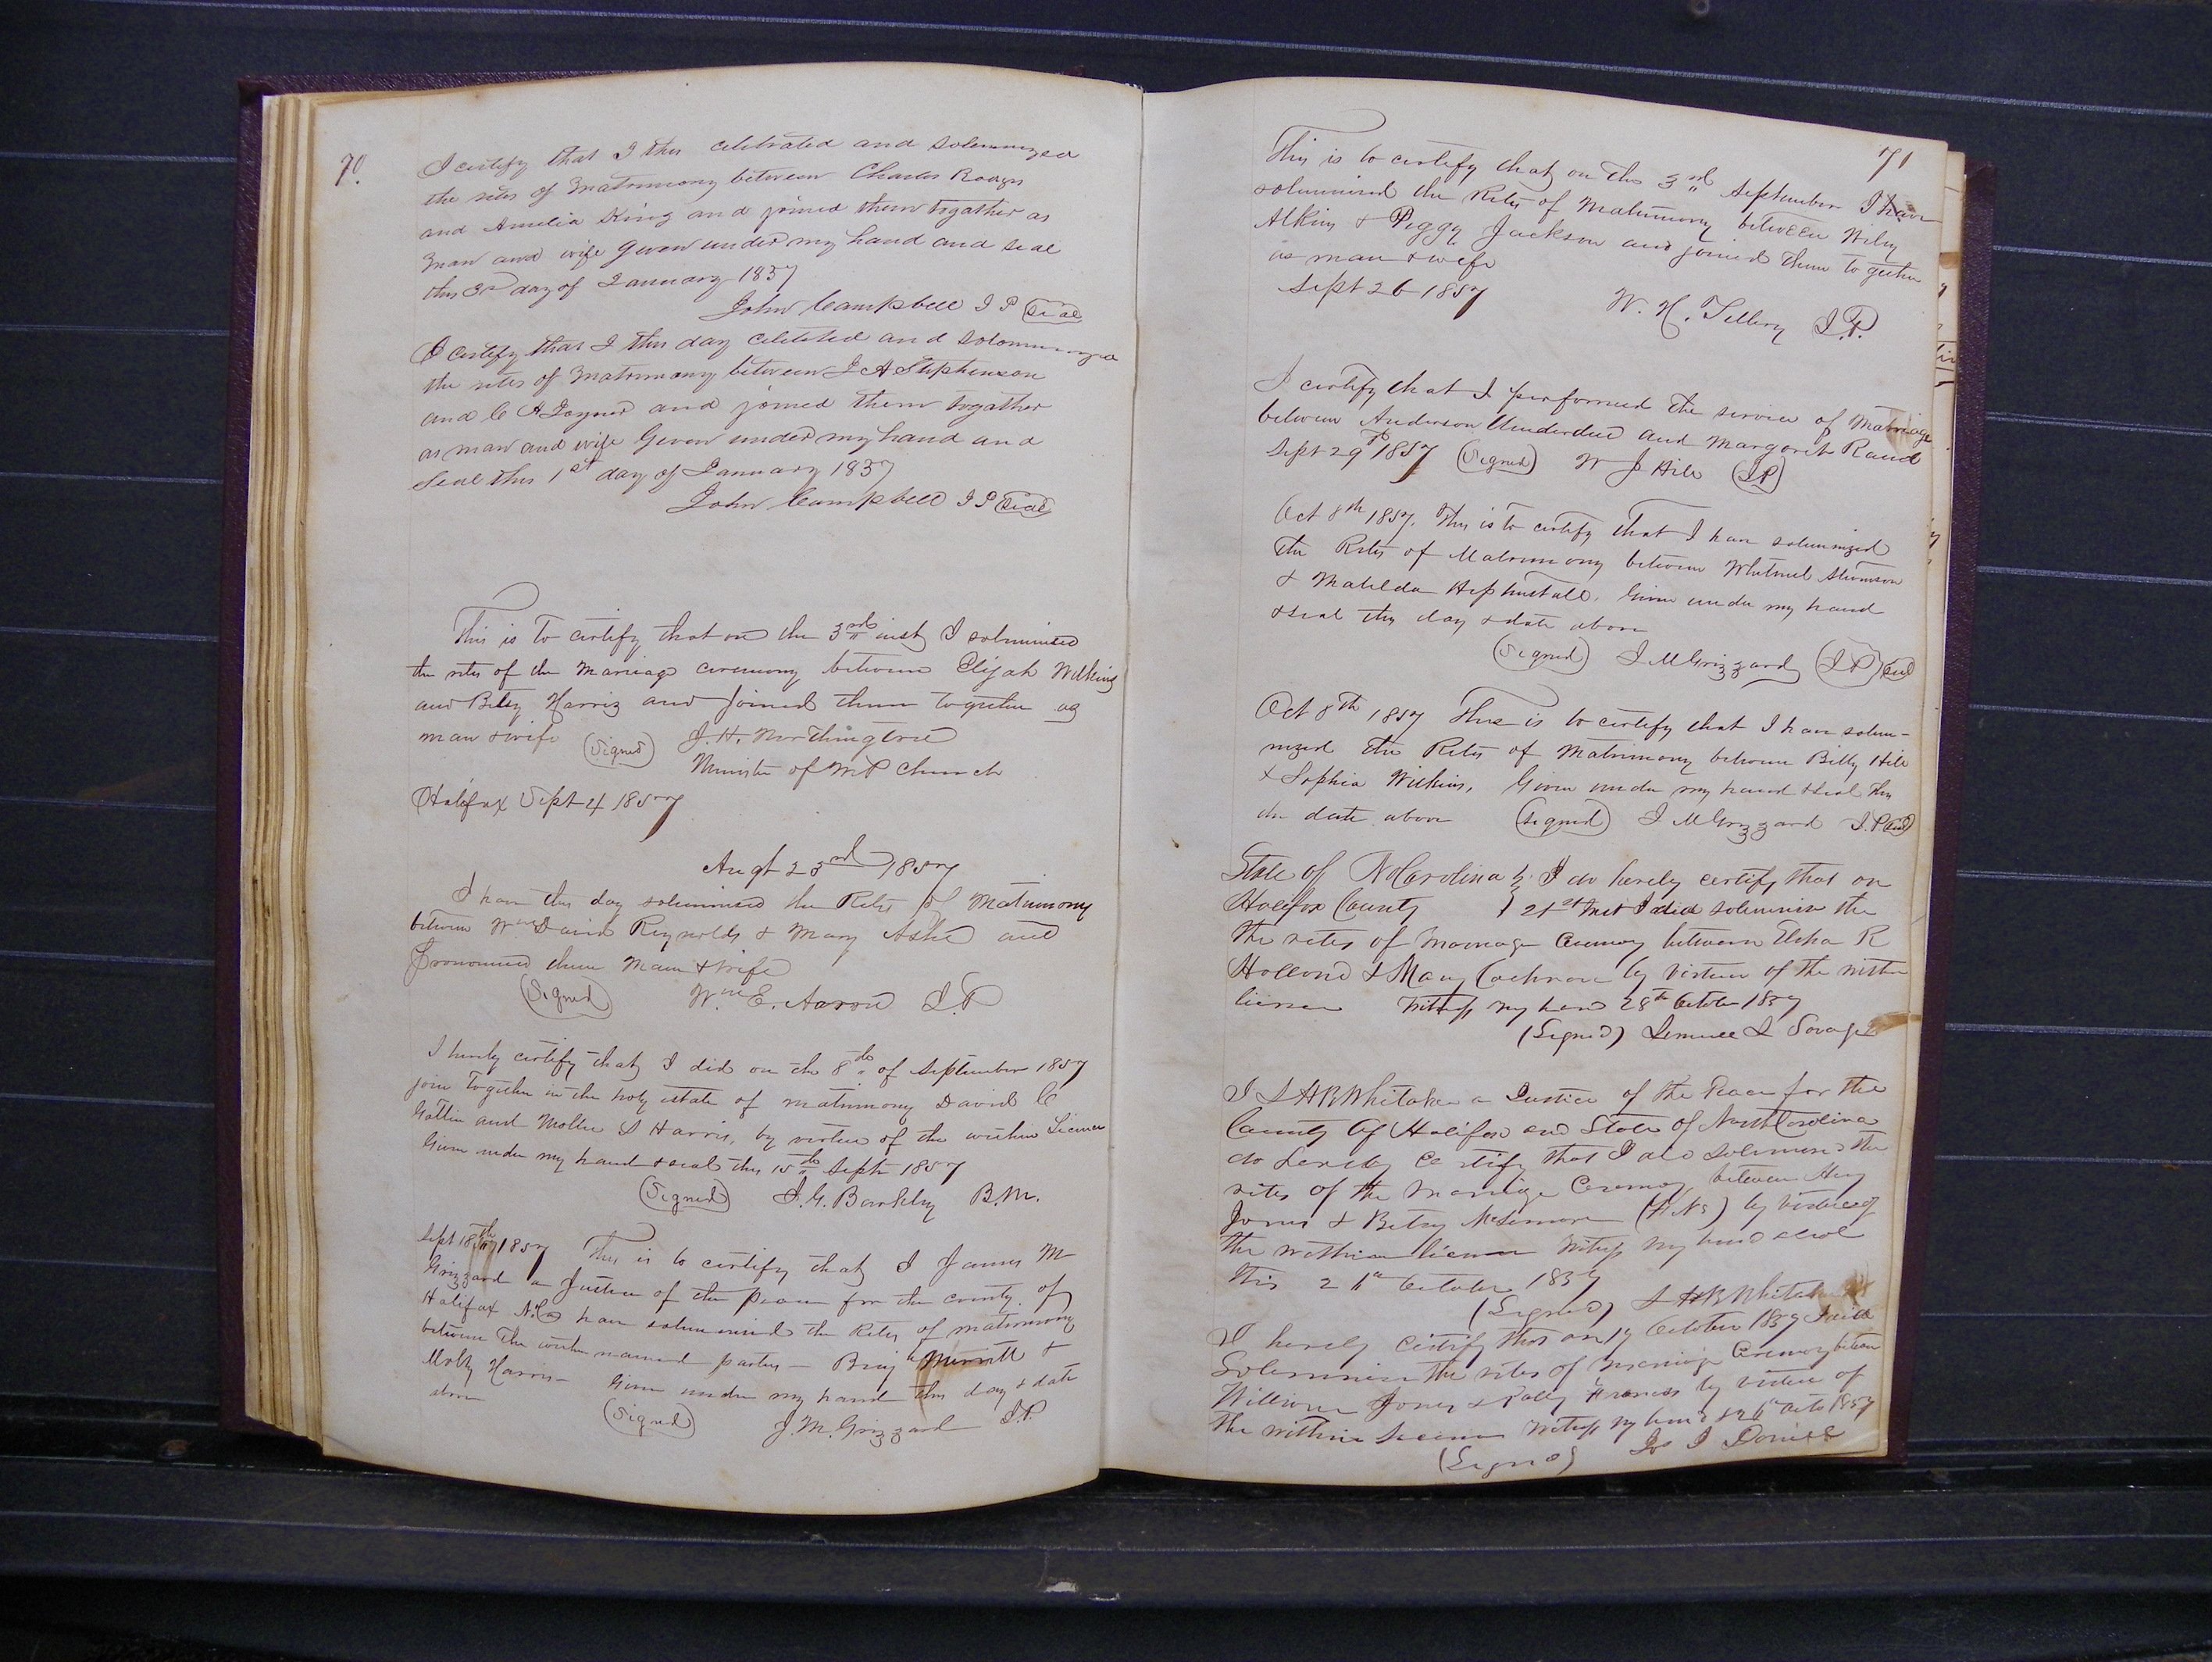 70.
I certify that I this celebrated and solemnized
the rites of Matrimony between Charles Rodgers
and Amelia King and joined them togather as
man and wife Given under my hand and seal
this 3rd day of January 1857
John Campbell J P (Seal)
I certify that I this day celebted and solommnized
the rites of Matrimony between J A Stephenson
and C A Joyner and joined them togather
as man and wife Given under my hand and
Seal this 1st day of January 1857
John Campbell J P (Seal)
This is to certify that on the 3rd inst I solminized
the rites of the Marriage ceremony between Elijah Wilkins
and Betsy Harris and Joined them together as
man & wife (Signed) J. H. Northington
Minister of M P Church
Halifax Sept 4 1857
Augt 23rd 1857
I have this day solemnized the Rites of Matrimony
between Wm David Reynolds & Mary Ashe and
Pronounced them Man & Wife
(Signed) Wm E. Aaron J.P
I hereby certify that I did on the 8th of September 1857
join together in the holy estate of matrimony David C
Gattin and Mollie S Harris, by virtue of the within License
Given under my hand & seal this 15th Sept 1857
(Signed) J. G. Barkley B.M.
Sept 18th 1857 This is to certify that I James M
Grizzard a Justice of the peace for the county of
Halifax N.C. have solemnized the Rites of matrimony
between the within named parties — Merritt &
Molly Harris — Given under my hand this day & date
above
(Signed) J. M. Grizzard J.P.
71
This is to certify that on the 3rd September I have
solemnized the Rites of Matrimony between Wiley
Atkins & Peggy Jackson and joined them together
as man & wife
Sept 26 1857 W. H. Tillery J.P.
I certify that I performed the service of Marriage
between Anderson Underdue and Margaret Rand
Sept 29th 1857 (Signed) W J Hill (JP)
Oct 8th 1857. This is to certify that I have solemnized
the Rites of Matrimony between Whitmel
& Matilda Hephustall. Given under my hand
& seal this day & date above
(Signed) J M Grizzard (JP) (seal)
Oct 8th 1857 This is to certify that I have solem-
nized the Rites of Matrimony between Billy Hill
& Sophia Wilkins, Given under my hand & seal this
the date above (signed) J M Grizzard J.P. (seal)
State of N Carolina } I do hereby certify that on
Halifax County } 21st Inst I did solemnise the
the rites of Marriage Ceremony between R
Holland & Mary Cochran by virtue of the within
license Witness my hand 28th October 1857
(Signed) Lemuel L Savage
I L H B Whitaker a Justice of the Peace for the
County of Halifax and State of North Carolina
do hereby certify that I did solemnise the
rites of the Marriage Ceremony between
Jones & Betsy McLemore by virtue of
the within license Witness my hand & seal
this October 1857
(Signed) L H B Whitaker
I hereby certify that on 17 October 1857 I did
Solemnise the rites of Marriage Ceremony between
William Jones & Francis by virtue of
the within license Witness my hand Octo 1857
(Signed) Daniel